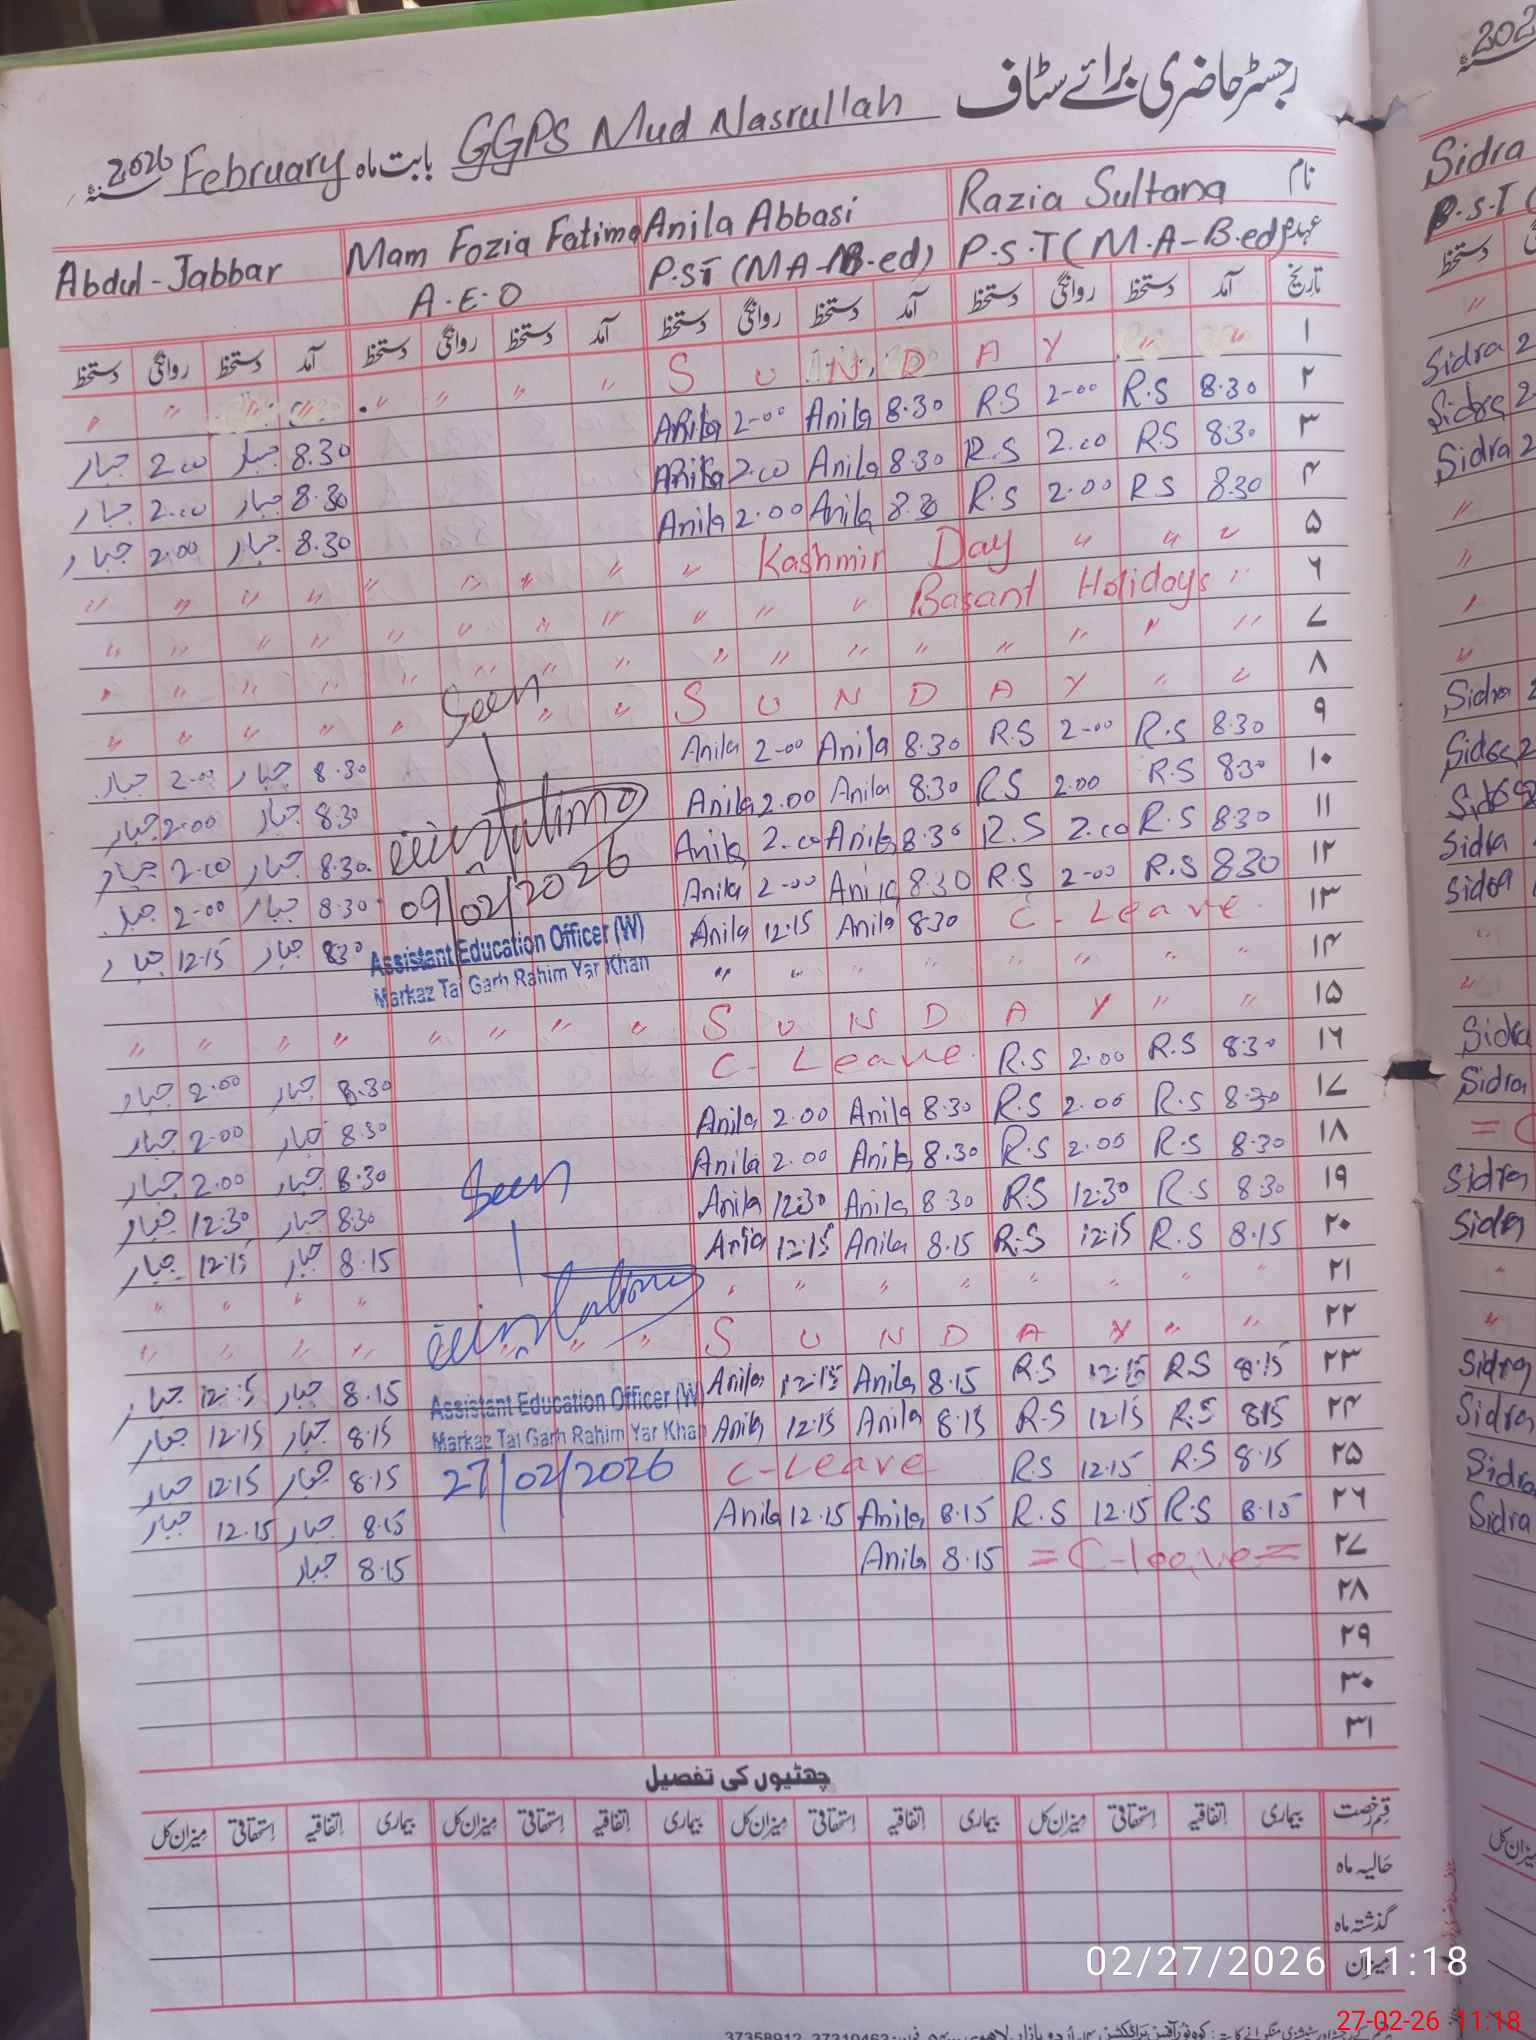 رجسٹر حاضری برائے سٹاف GGPS Mud Nasrullah بابت ماہ February 2026
نام Razia Sultana Anila Abbasi Mam Fozia Fatima Abdul-Jabbar
عہدہ P.S.T (M.A-B.ed) P.ST (MA-B.ed) A.E.O
تاریخ آمد دستخط روانگی دستخط آمد دستخط روانگی دستخط آمد دستخط روانگی دستخط آمد دستخط روانگی دستخط
۱ " " S U N D A Y " " " " " " " "
۲ 8.30 R.S 2-00 RS 8.30 Anila 2-00 Anila 8.30 جبار 2.00 جبار
۳ 8.30 RS 2.00 R.S 8.30 Anila 2.00 Anila 8.30 جبار 2.00 جبار
۴ 8.30 RS 2.00 R.S 8.30 Anila 2.00 Anila 8.30 جبار 2.00 جبار
۵ " " " Kashmir Day " " " " " " " " "
۶ " Basant Holidays " " " " " " " " " " "
۷ " " " " " " " " " " " " " " " "
۸ " " S U N D A Y " " " " " " "
۹ 8.30 R.S 2-00 R.S 8.30 Anila 2-00 Anila 8.30 جبار 2.00 جبار
۱۰ 8.30 R.S 2.00 RS 8.30 Anila 2.00 Anila 8.30 جبار 2.00 جبار
۱۱ 8.30 R.S 2.00 R.S 8.30 Anila 2.00 Anila 8.30 جبار 2.00 جبار
۱۲ 8.30 R.S 2-00 R.S 8.30 Anila 2-00 Anila 8.30 جبار 2-00 جبار
۱۳ C-Leave 8.30 Anila 12.15 Anila 8.30 جبار 12.15 جبار
۱۴ " " " " " " " "
۱۵ " " S U N D A Y " " " " " " " "
۱۶ 8.30 R.S 2.00 R.S C-Leave 8.30 جبار 2.00 جبار
۱۷ 8.30 R.S 2.00 R.S 8.30 Anila 2.00 Anila 8.30 جبار 2.00 جبار
۱۸ 8.30 R.S 2.00 R.S 8.30 Anila 2.00 Anila 8.30 جبار 2.00 جبار
۱۹ 8.30 R.S 12:30 RS 8.30 Anila 12:30 Anila 8.30 جبار 12.30 جبار
۲۰ 8.15 R.S 12:15 R.S 8.15 Anila 12:15 Anila 8.15 جبار 12:15 جبار
۲۱ " " " " " " " " " " " "
۲۲ " " S U N D A Y " " " " " "
۲۳ 8.15 RS 12:15 R.S 8.15 Anila 12:15 Anila 8.15 جبار 12:15 جبار
۲۴ 8.15 R.S 12:15 R.S 8.15 Anila 12:15 Anila 8.15 جبار 12.15 جبار
۲۵ 8.15 R.S 12.15 R.S C-Leave 8.15 جبار 12.15 جبار
۲۶ 8.15 R.S 12.15 R.S 8.15 Anila 12.15 Anila 8.15 جبار 12.15 جبار
۲۷ = C-leave = 8.15 Anila 8.15 جبار
۲۸
۲۹
۳۰
۳۱
Seen
Fatima
09/02/2026
Assistant Education Officer (W)
Markaz Taj Garh Rahim Yar Khan
Seen
Fatima
Assistant Education Officer (W)
Markaz Taj Garh Rahim Yar Khan
27/02/2026
چھٹیوں کی تفصیل
قسم رخصت بیماری اتفاقیہ استحقاقی میزان کل بیماری اتفاقیہ استحقاقی میزان کل بیماری اتفاقیہ استحقاقی میزان کل بیماری اتفاقیہ استحقاقی میزان کل
حالیہ ماہ
گذشتہ ماہ
میزان
202
Sidra
P.S.T (
دستخط
Sidra 2
Sidra 2
Sidra 2
Sidra 2
Sidra 2
Sidra
Sidra
Sidra
Sidra
Sidra
= C
Sidra
Sidra
Sidra
Sidra
Sidra
Sidra
میزان کل
02/27/2026 11:18
27-02-26 11:18